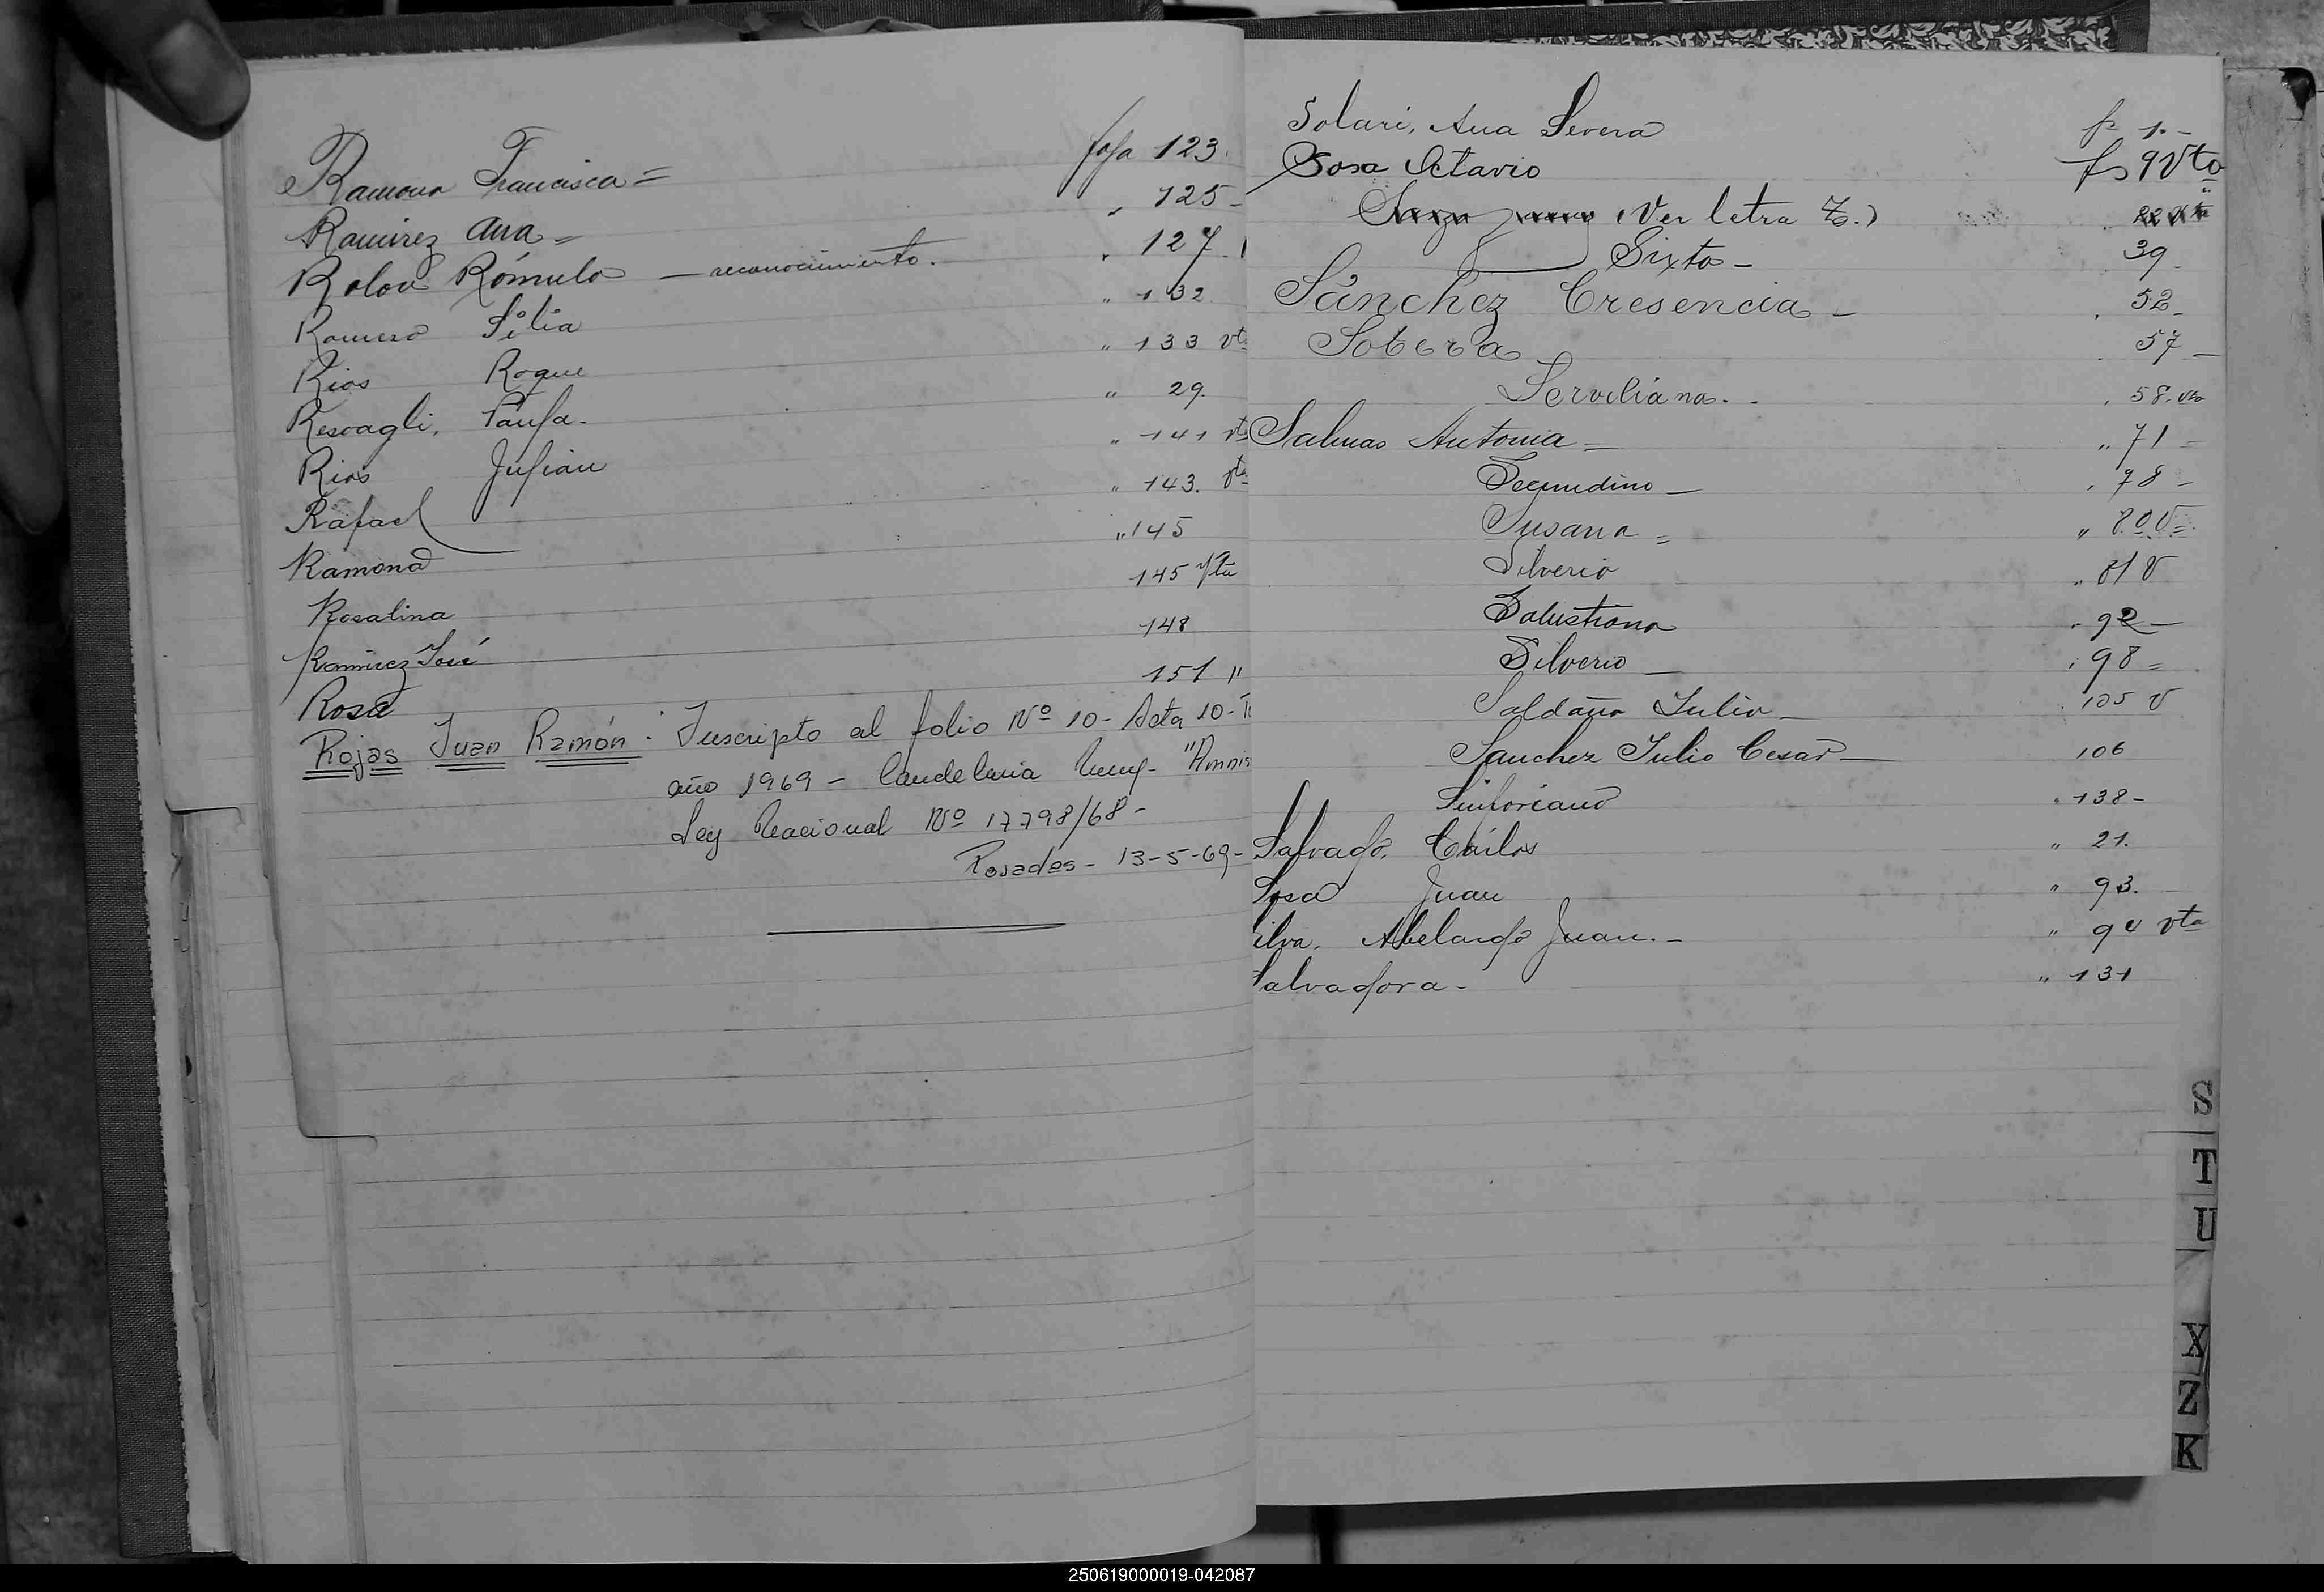 Ramona Francisca = foja 123.
Ramirez Ana = " 125 -
Rolon Rómulo - reconocimiento. " 127
Romero Silia " 132
Rios Roque " 133 vta
Resoagli, Paula. " 29.
Rios Julián " 141 vta
Rafael " 143. vta
Ramona " 145
Rosalina 145 vta
Ramirez José 148
Rosa 151 "
Rojas Juan Ramón: Inscripto al folio Nº 10 - Acta 10 -
año 1969 - Candelaria
Ley Nacional Nº 17798/68 -
Posadas - 13-5-69 -
Solari, Ana Severa fs 1. -
Sosa Octavio fs 9 Vta
(Ver letra Z.) 22 Vta
Sixto - 39
Sánchez Cresencia - 52 -
Sotera 57 -
Serviliana. - 58. vta
Salinas Antonia - " 71 -
Secundino - " 78 -
Susana = " 80 V =
Silverio " 81 V
Salustiana " 92 -
Silverio - " 98 =
Saldaña Julio - 105 V
Sanchez Julio Cesar - 106
Sinforiano " 138 -
Salvado, Cárlos " 21.
Sosa Juan " 93.
ilva, Abelardo Juan. - " 90 vta
alvadora - " 131
S
T
U
X
Z
K
250619000019-042087